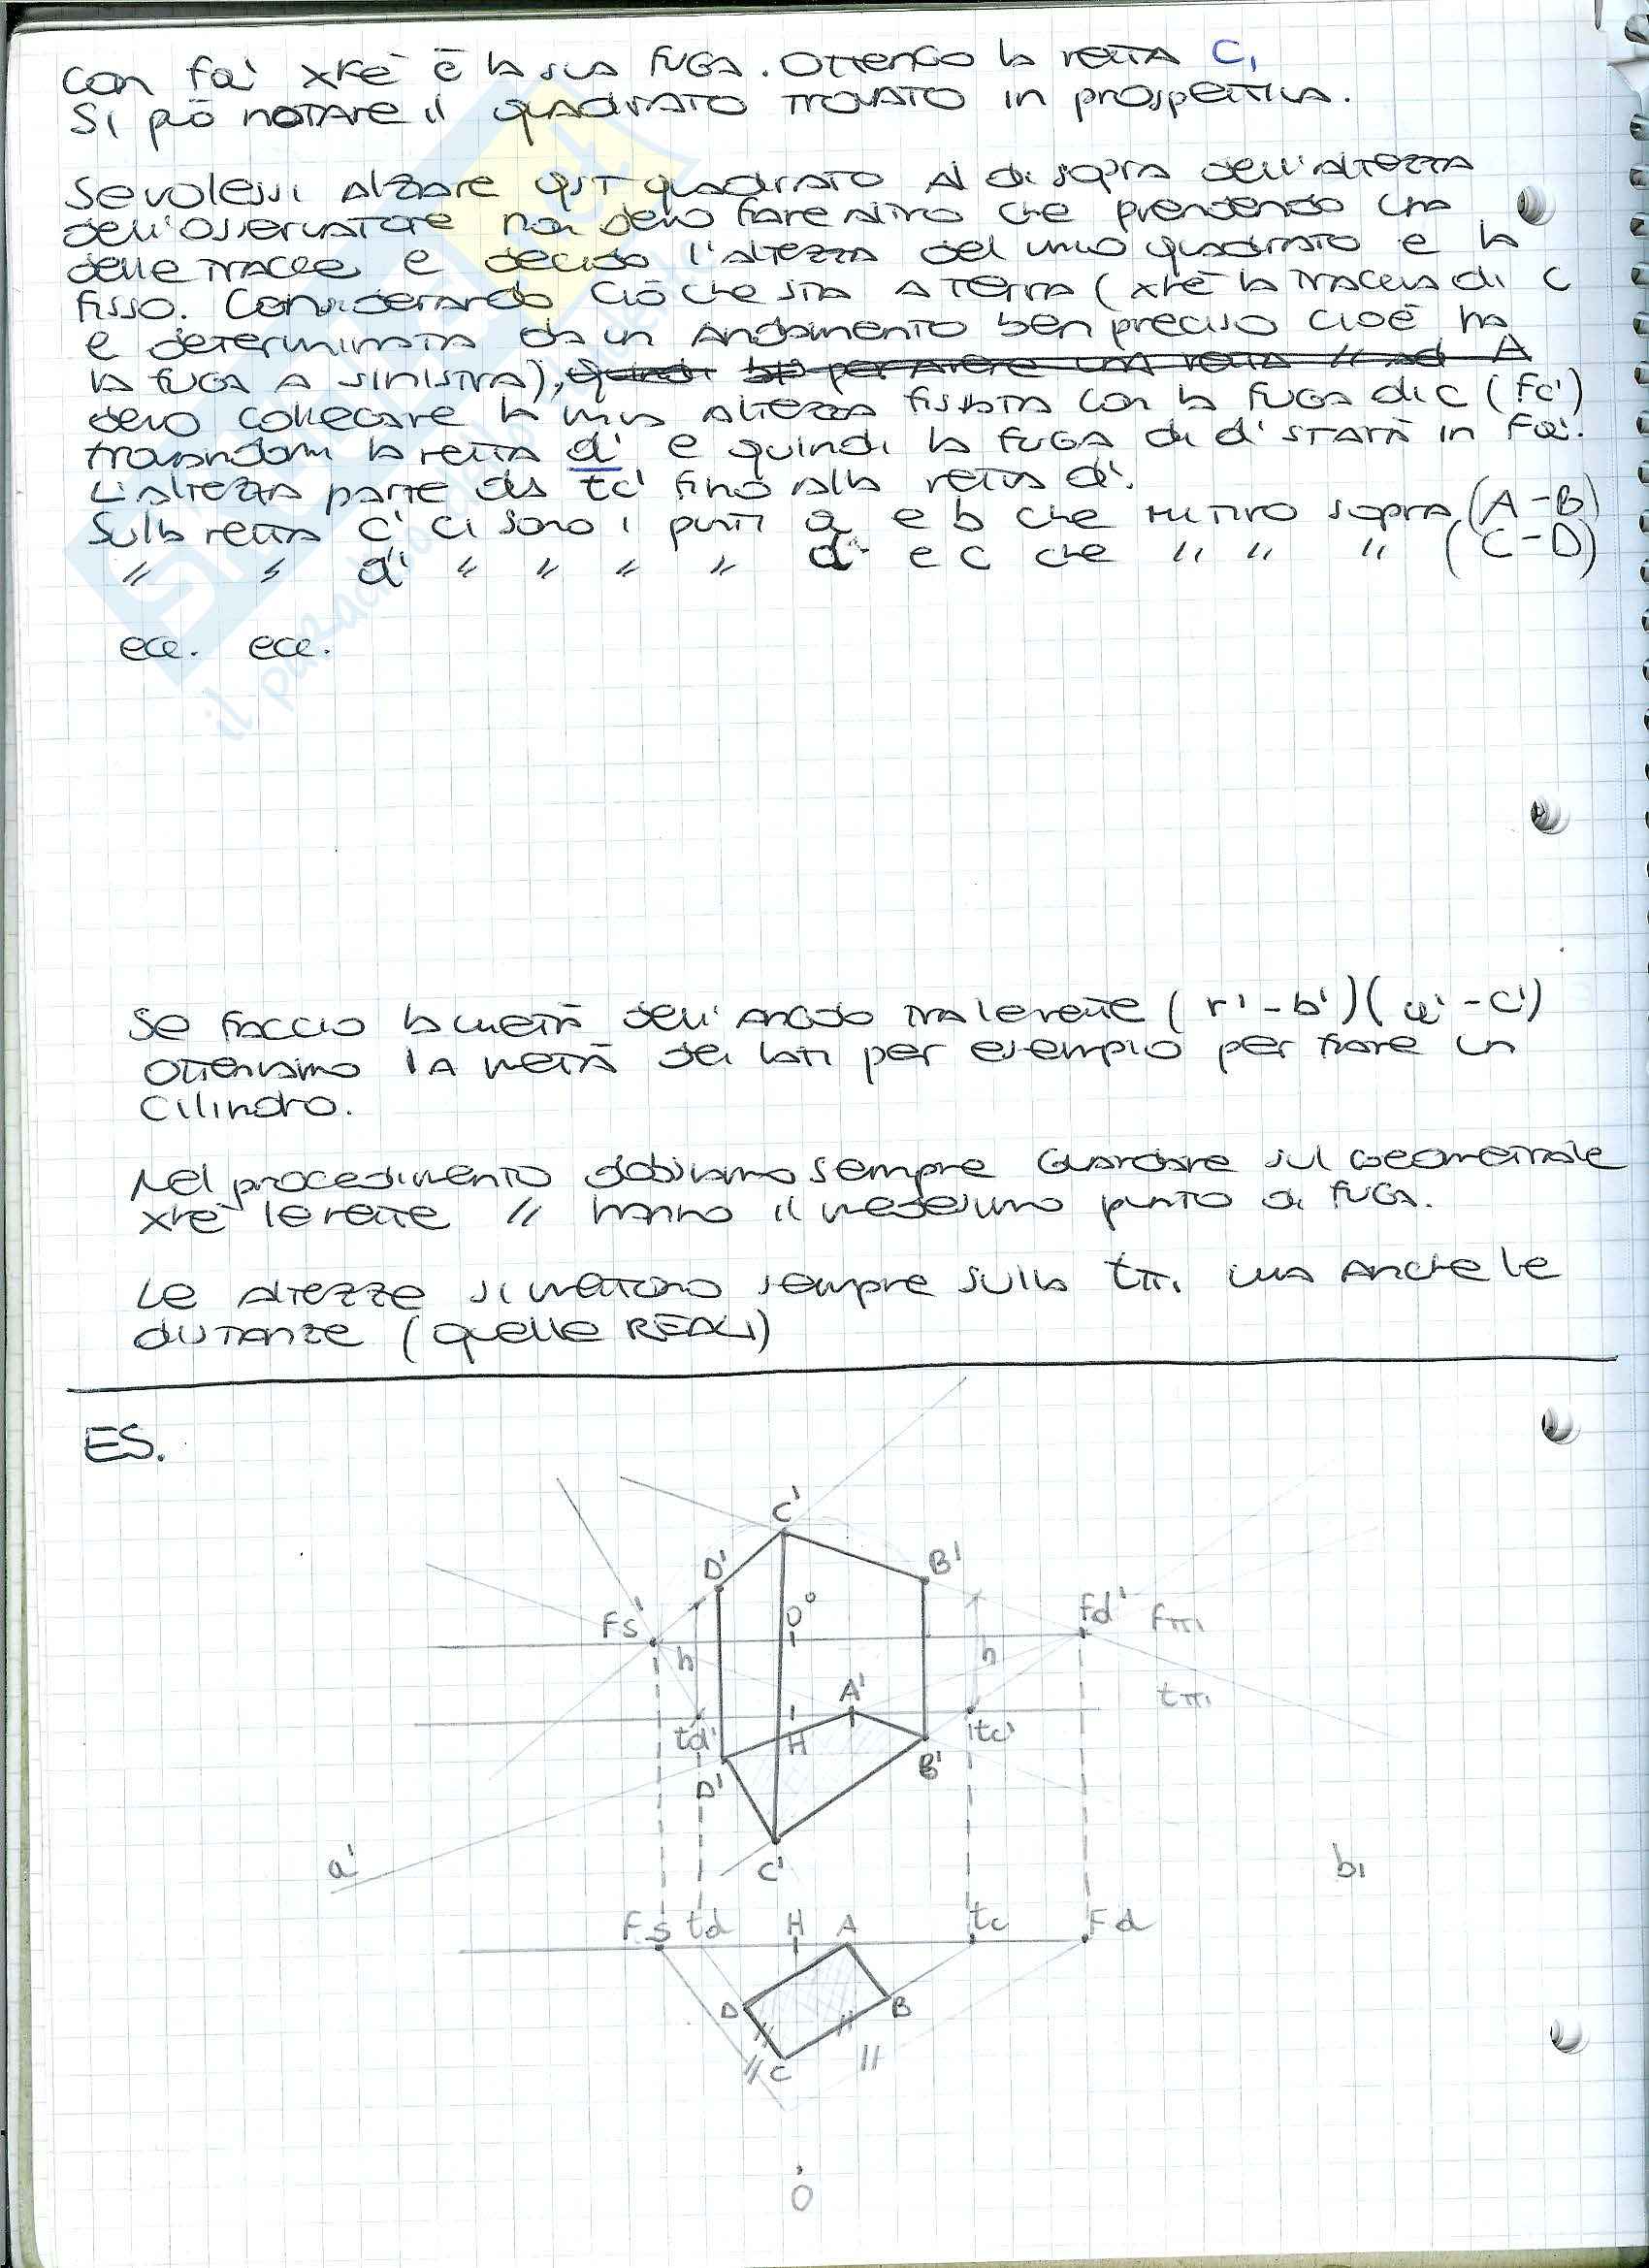 con fa' xkè è la sua fuga. Ottengo la retta C₁
Si può notare il quadrato trovato in prospettiva.
Se volessi alzare qst quadrato al di sopra dell'altezza
dell'osservatore non devo fare altro che prendendo una
delle tracce e decido l'altezza del mio quadrato e la
fisso. Considerando ciò che sta a terra (xkè la traccia di c
e determinata da un andamento ben preciso cioè ha
la fuga a sinistra), quindi per avere una retta // ad A
devo collegare la mia altezza fissata con la fuga di c (Fc')
trovandomi la retta d' e quindi la fuga di d' starà in Fa'.
L'altezza parte da tc' fino alla retta d'.
Sulla retta c' ci sono i punti a e b che ritiro sopra (A-B)
" " d' " " " " d e c che " " " (C-D)
ecc. ecc.
Se faccio la metà dell'angolo tra le rette (r'-b')(a'-c')
otteniamo la metà dei lati per esempio per fare un
cilindro.
Nel procedimento dobbiamo sempre guardare sul geometrale
xkè le rette // hanno il medesimo punto di fuga.
Le altezze si mettono sempre sulla tπ₁ ma anche le
distanze (quelle REALI)
ES.
C'
D' B'
O°
Fs' Fd' fπ₁
h h
A' tπ₁
td' H tc'
D' B'
a' C' b₁
Fs td H A tc Fd
D B
// // //
// C
O